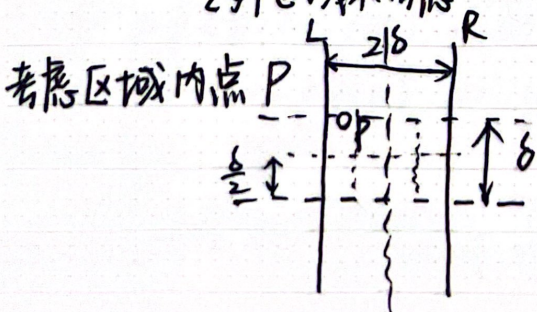 L R
2δ
考虑区域内点 P
p
δ
δ/2